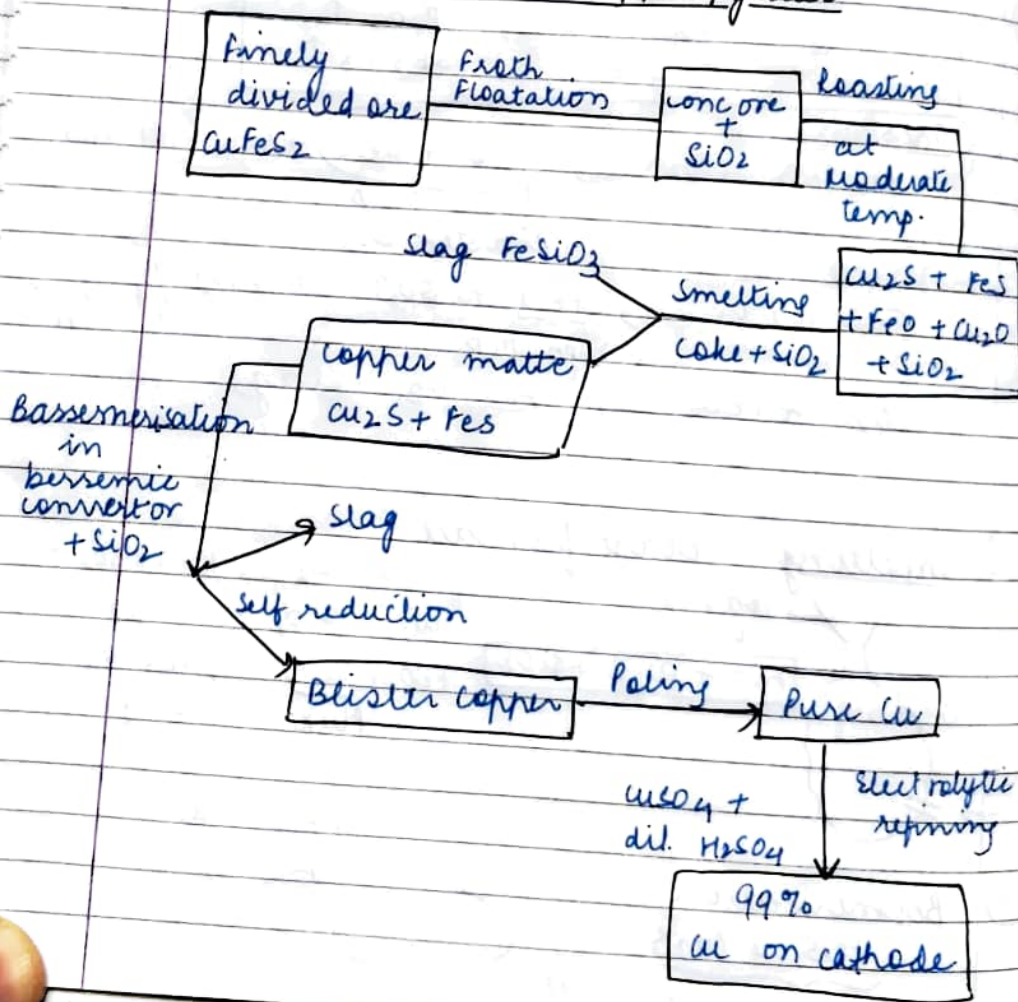 Finely
divided ore
CuFeS2
Froth
Floatation
conc ore
+
SiO2
Roasting
at
Moderate
temp.
Cu2S + FeS
+ FeO + Cu2O
+ SiO2
Smelting
Coke + SiO2
Slag FeSiO3
Copper matte
Cu2S + FeS
Bassemerisation
in
bessemic
convertor
+ SiO2
Slag
Self reduction
Blister copper
Poling
Pure Cu
Electrolytic
refining
CuSO4 +
dil. H2SO4
99%
Cu on cathode